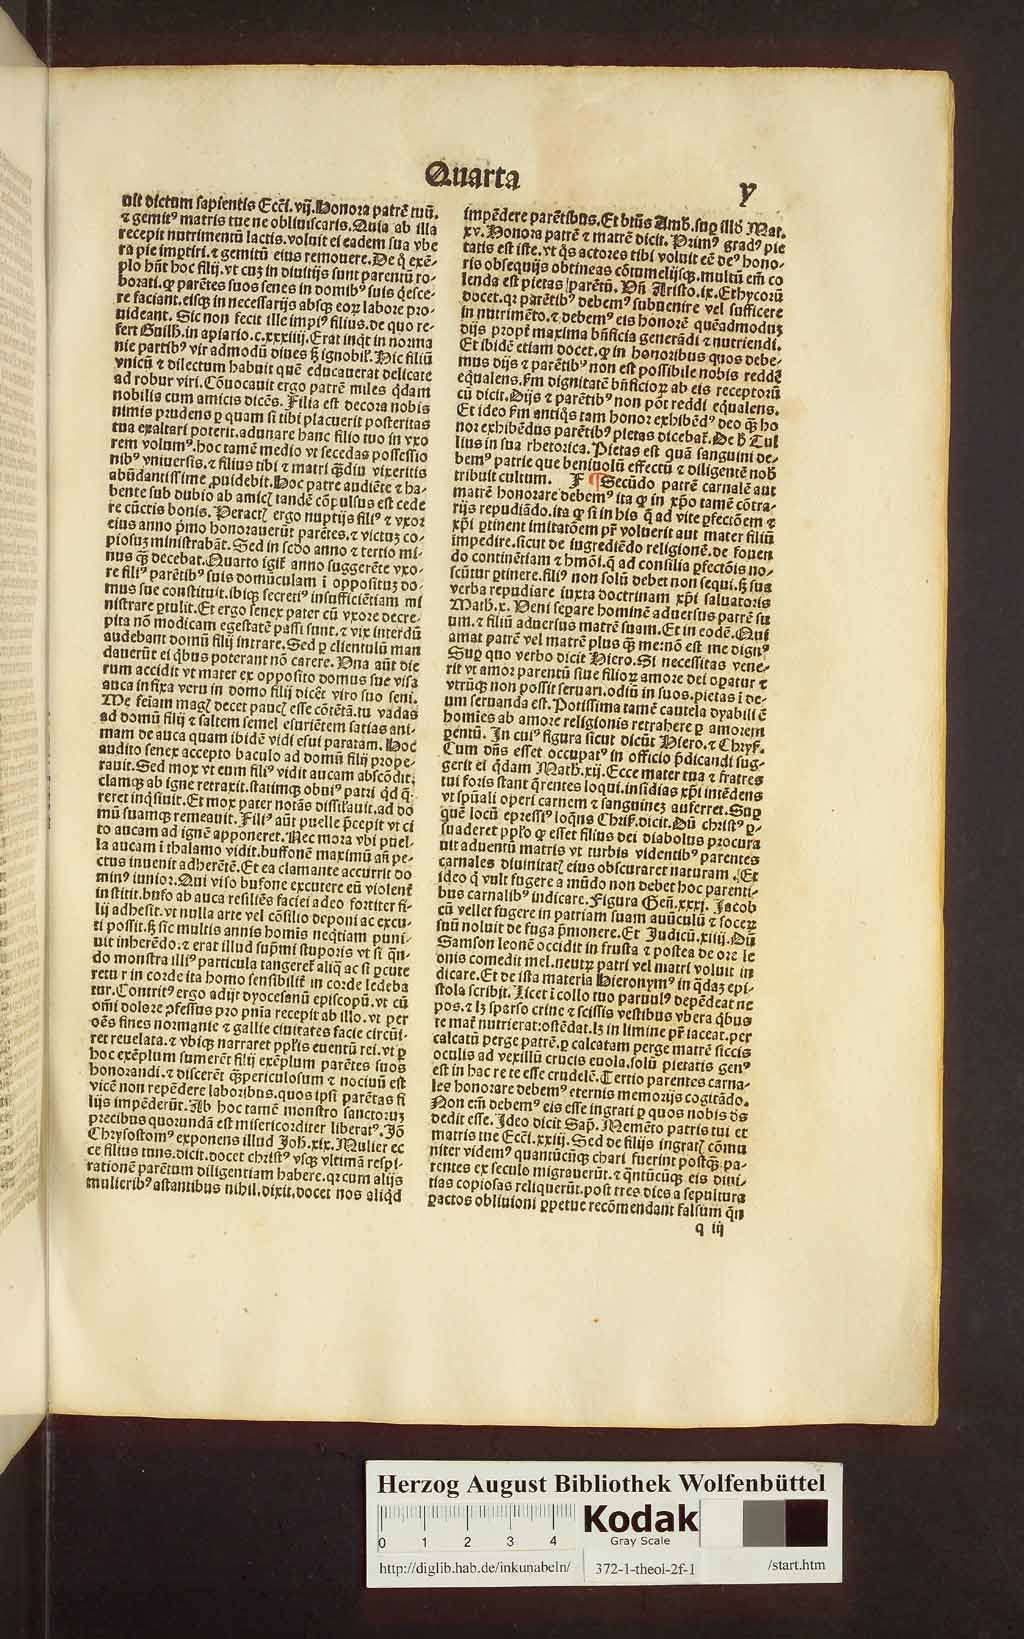 Quarta
y
nit dictum sapientis Ecci. vij. Honora patrē tuū.
⁊ gemitꝰ matris tue ne obliuiscaris. Quia ab illa
recepit nutrimentū lactis. voluit ei eadem sua vbe
ra pie impertiri. ⁊ gemitū eius remouere. De q̊ exē-
plo hn̄t hoc filij. vt cuz in diuitijs sunt parentū ro-
borati. qꝫ parētes suos senes in domibꝰ suis q̊esce-
re faciant. eisqꝫ in necessarijs absqꝫ eoꝝ labore pro-
uideant. Sic non fecit ille impiꝰ filius. de quo re-
fert Guilh. in apiario. c. xxxiiij. Erat inqt in norma
nie partibꝰ vir admodū diues sꝫ ignobil'. Hic filiū
vnicū ⁊ dilectum habuit quē educauerat delicate
ad robur viri. Cōuocauit ergo patrē miles q̇dam
nobilis cum amicis dicēs. Filia est decora nobis
nimis prudens ꝑ quam si tibi placuerit posteritas
tua exaltari poterit. adunare hanc filio tuo in vxo
rem volumꝰ. hoc tamē medio vt secedas possessio
nibꝰ vniuersis. ⁊ filius tibi ⁊ matri qᷓdiu vixeritis
abūdantissime ꝓuidebit. Hoc patre audiēte ⁊ ha-
bente sub dubio ab amicꝭ tandē cōpulsus est cede
re cūctis bonis. Peractꝭ ergo nuptijs filiꝰ ⁊ vxor
eius anno pͥmo honorauerūt parētes. ⁊ victuꝫ co-
piosuꝫ ministrabāt. Sed in scdo anno ⁊ tertio mi-
nus qᷓꝫ decebat. Quarto igiť anno suggerēte vxo-
re filiꝰ parētibꝰ suis domūculam ī opposituꝫ do-
mus sue constituit. ibiqꝫ secretiꝰ insufficiētiam mi
nistrare ꝑtulit. Et ergo senex pater cū vxore decre-
pita nō modicam egestatē passi sunt. ⁊ vix interdū
audebant domū filij intrare. Sed ꝑ clientulū man
dauerūt ei q̇bus poterant nō carere. Vna aūt die
rum accidit vt mater ex opposito domus sue visa
auca infixa veru in domo filij dicēt viro suo seni.
Me feiam magꝭ decet paucꝭ esse cōtētā. tu vadas
ad domū filij ⁊ saltem semel esuriētem saties ani-
mam de auca quam ibidē vidi esui paratam. Hoc
audito senex accepto baculo ad domū filij prope-
rauit. Sed mox vt eum filiꝰ vidit aucam abscōdit.
clamqꝫ ab igne retraxit. statimqꝫ obuiꝰ patri q̇d q̄-
reret inq̇siuit. Et mox pater notās dissil'auit. ad do
mū suamqꝫ remeauit. Filiꝰ aūt puelle p̄cepit vt ci
to aucam ad ignē apponeret. Nec mora vbi puel-
la aucam ī thalamo vidit. buffonē maximū añ pe-
ctus inuenit adherētē. Et ea clamante accurrit do
minꝰ iunior. Qui viso bufone excutere eū violenť
institit. bufo ab auca resiliēs faciei adeo fortiter fi-
lij adhesit. vt nulla arte vel cōsilio deponi ac excu-
ti possit. sꝫ sic multis annis homīs neq̇tiam puni-
uit inherēdo. ⁊ erat illud sup̄mi stuporis vt si q̇n-
do monstra illiꝰ particula tangereť aliq̊ ac si ꝑcute
retur in corde ita homo sensibiliť in corde ledeba
tur. Contritꝰ ergo adijt dyocesanū episcopū. vt cū
om̄i dolore ꝓfessus pro pn̄ia recepit ab illo. vt per
oēs fines normanie ⁊ gallie ciuitates facie circūi-
ret reuelata. ⁊ vbiqꝫ narraret ppl'is euentū rei. vt ꝑ
hoc exēplum sumerēt filij exēplum parētes suos
honorandi. ⁊ discerēt qᷓꝫ periculosum ⁊ nociuū est
vicē non repēdere laboribus. quos ipsi parētes fi
lijs impēderūt. Ab hoc tamē monstro sanctoruꝫ
precibus quorundā est misericorditer liberatꝰ. Jō
Chrysostomꝰ exponens illud Joh. xix. Mulier ec
ce filius tuus. dicit. docet christꝰ vsqꝫ vltimā respi-
rationē parētum diligentiam habere. qꝛ cum alijs
mulieribꝰ astantibus nihil. dixit. docet nos aliq̇d
impēdere parētibus. Et btūs Amb. suꝑ illd̓ Mat.
xv. Honora patrē ⁊ matrē dicit. Primꝰ gradꝰ pie
tatis est iste. vt q̊s actores tibi voluit eē deꝰ hono-
ris obsequijs obtineas cōtumelijsqꝫ. multū em̄ co
lenda est pietas parētū. Vn̄ Aristo. ix. Ethycorū
docet. qꝛ parētibꝰ debemꝰ subuenire vel sufficere
in nutrimēto. ⁊ debemꝰ eis honorē quēadmoduꝫ
dijs propť maxima bn̄ficia generādi ⁊ nutriendi.
Et ibidē etiam docet. qꝫ in honoribus quos debe-
mus dijs ⁊ parētibꝰ non est possibile nobis reddē
eq̇ualens. ẜm dignitatē bn̄ficioꝝ ab eis receptorū
cū dicit. Dijs ⁊ parētibꝰ non pōt reddi eq̇ualens.
Et ideo ẜm antiq̊s tam honor exhibēdꝰ deo qᷓꝫ ho
nor exhibēdus parētibꝰ pietas dicebať. De h̓ Tul
lius in sua rhetorica. Pietas est quā sanguini de-
bemꝰ patrie que beniuolū effectū ⁊ diligentē nob̓
tribuit cultum. F ¶ Secūdo patrē carnalē aut
matrē honorare debemꝰ ita qꝫ in xp̄o tamē cōtra-
rijs repudiādo. ita qꝫ si in his q̄ ad vite ꝑfectōem ⁊
xp̄i ꝑtinent imitatōem pr̄ voluerit aut mater filiū
impedire. sicut de ingrediēdo religionē. de fouen
do continētiam ⁊ hmōi. q̄ ad consilia ꝑfectōis no-
scūtur ꝑtinere. filiꝰ non solū debet non sequi. sꝫ sua
verba repudiare iuxta doctrinam xp̄i saluatoris
Math. x. Veni seꝑare hominē aduersus patrē su
um. ⁊ filiū aduersus matrē suam. Et in eodē. Qui
amat patrē vel matrē plus qᷓꝫ me: nō est me dignꝰ
Suꝑ quo verbo dicit Hiero. Si necessitas vene-
rit vt amor parentū siue filioꝝ amore dei opatur ⁊
vtrūqꝫ non possit seruari. odiū in suos. pietas ī de-
um seruanda est. Potissima tamē cautela dyabili ē
homīes ab amore religionis retrahere ꝑ amorem
ꝑentū. In cuiꝰ figura sicut dicūt Hiero. ⁊ Chrys.
Cum dn̄s esset occupatꝰ in officio p̄dicandi sug-
gerit ei q̇dam Math. xij. Ecce mater tua ⁊ fratres
tui foris stant q̄rentes loqui. insidias xp̄i intēdens
vt spūali operi carnem ⁊ sanguineꝫ auferret. Suꝑ
quē locū epressiꝰ loq̇ns Chris. dicit. Dū christꝰ ꝑ-
suaderet ppl'o qꝫ esset filius dei diabolus procura
uit aduentū matris vt turbis videntibꝰ parentes
carnales diuinitatꝭ eius obscuraret naturam. Et
ideo q̇ vult fugere a mūdo non debet hoc parenti-
bus carnalibꝰ indicare. Figura Gen̄. xxxj. Jacob
cū vellet fugere in patriam suam auūculū ⁊ soceꝝ
suū noluit de fuga p̄monere. Et Judicū. xiiij. Dū
Samson leonē occidit in frusta ⁊ postea de ore le
onis comedit mel. neutꝝ patri vel matri voluit in
dicare. Et de ista materia Hieronymꝰ in q̇daꝫ epi-
stola scribit. Licet ī collo tuo paruulꝰ depēdeat ne
pos. ⁊ lꝫ sparso crine ⁊ scissis vestibus vbera q̇bus
te mať nutrierat: ostēdat. lꝫ in limine pr̄ iaceat. per
calcatū perge patrē. ꝑ calcatam perge matrē siccis
oculis ad vexillū crucis euola. solū pietatis genꝰ
est in hac re te esse crudelē. Tertio parentes carna-
les honorare debemꝰ eternis memorijs cogitādo.
Non em̄ debemꝰ eis esse ingrati ꝑ quos nobis d̓s
dedit esse. Ideo dicit Sap̄. Memēto patris tui et
matris tue Ecci. xxiij. Sed de filijs ingratꝭ cōmu
niter videmꝰ quantūcūqꝫ chari fuerint postqᷓꝫ pa-
rentes ex seculo migrauerūt. ⁊ q̇ntūcūqꝫ eis diui-
tias copiosas reliquerūt. post tres dies a sepultura
ꝑactos obliuioni ꝑpetue recōmendant falsum q̇n
q iij
Herzog August Bibliothek Wolfenbüttel
0 1 2 3 4
Kodak
Gray Scale
http://diglib.hab.de/inkunabeln/ 372-1-theol-2f-1 /start.htm